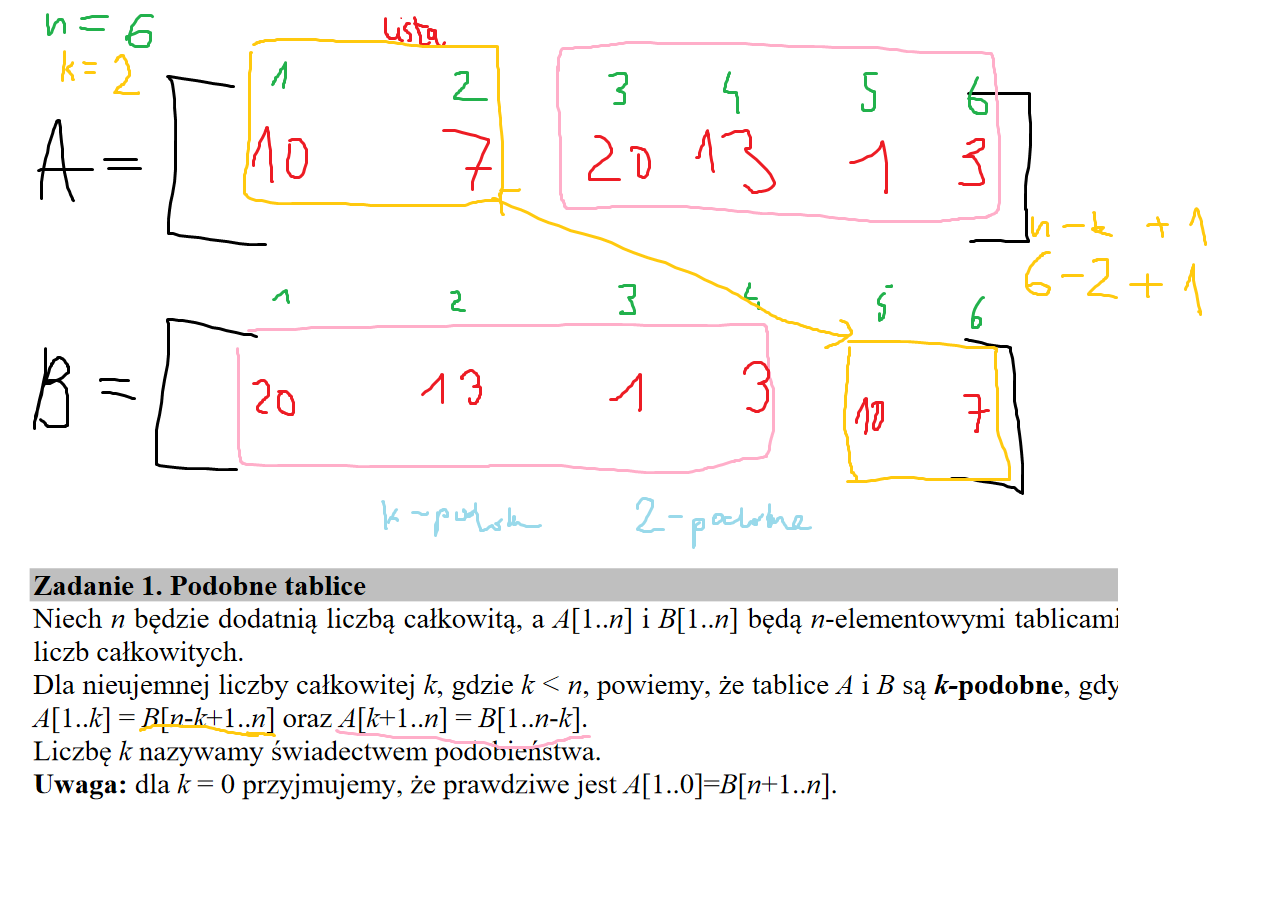 n = 6
lista
k = 2
1 2 3 4 5 6
A = 10 7 20 13 1 3
n - k + 1
6 - 2 + 1
1 2 3 4 5 6
B = 20 13 1 3 10 7
2-podobne
Zadanie 1. Podobne tablice
Niech n będzie dodatnią liczbą całkowitą, a A[1..n] i B[1..n] będą n-elementowymi tablicami
liczb całkowitych.
Dla nieujemnej liczby całkowitej k, gdzie k < n, powiemy, że tablice A i B są k-podobne, gdy
A[1..k] = B[n-k+1..n] oraz A[k+1..n] = B[1..n-k].
Liczbę k nazywamy świadectwem podobieństwa.
Uwaga: dla k = 0 przyjmujemy, że prawdziwe jest A[1..0]=B[n+1..n].